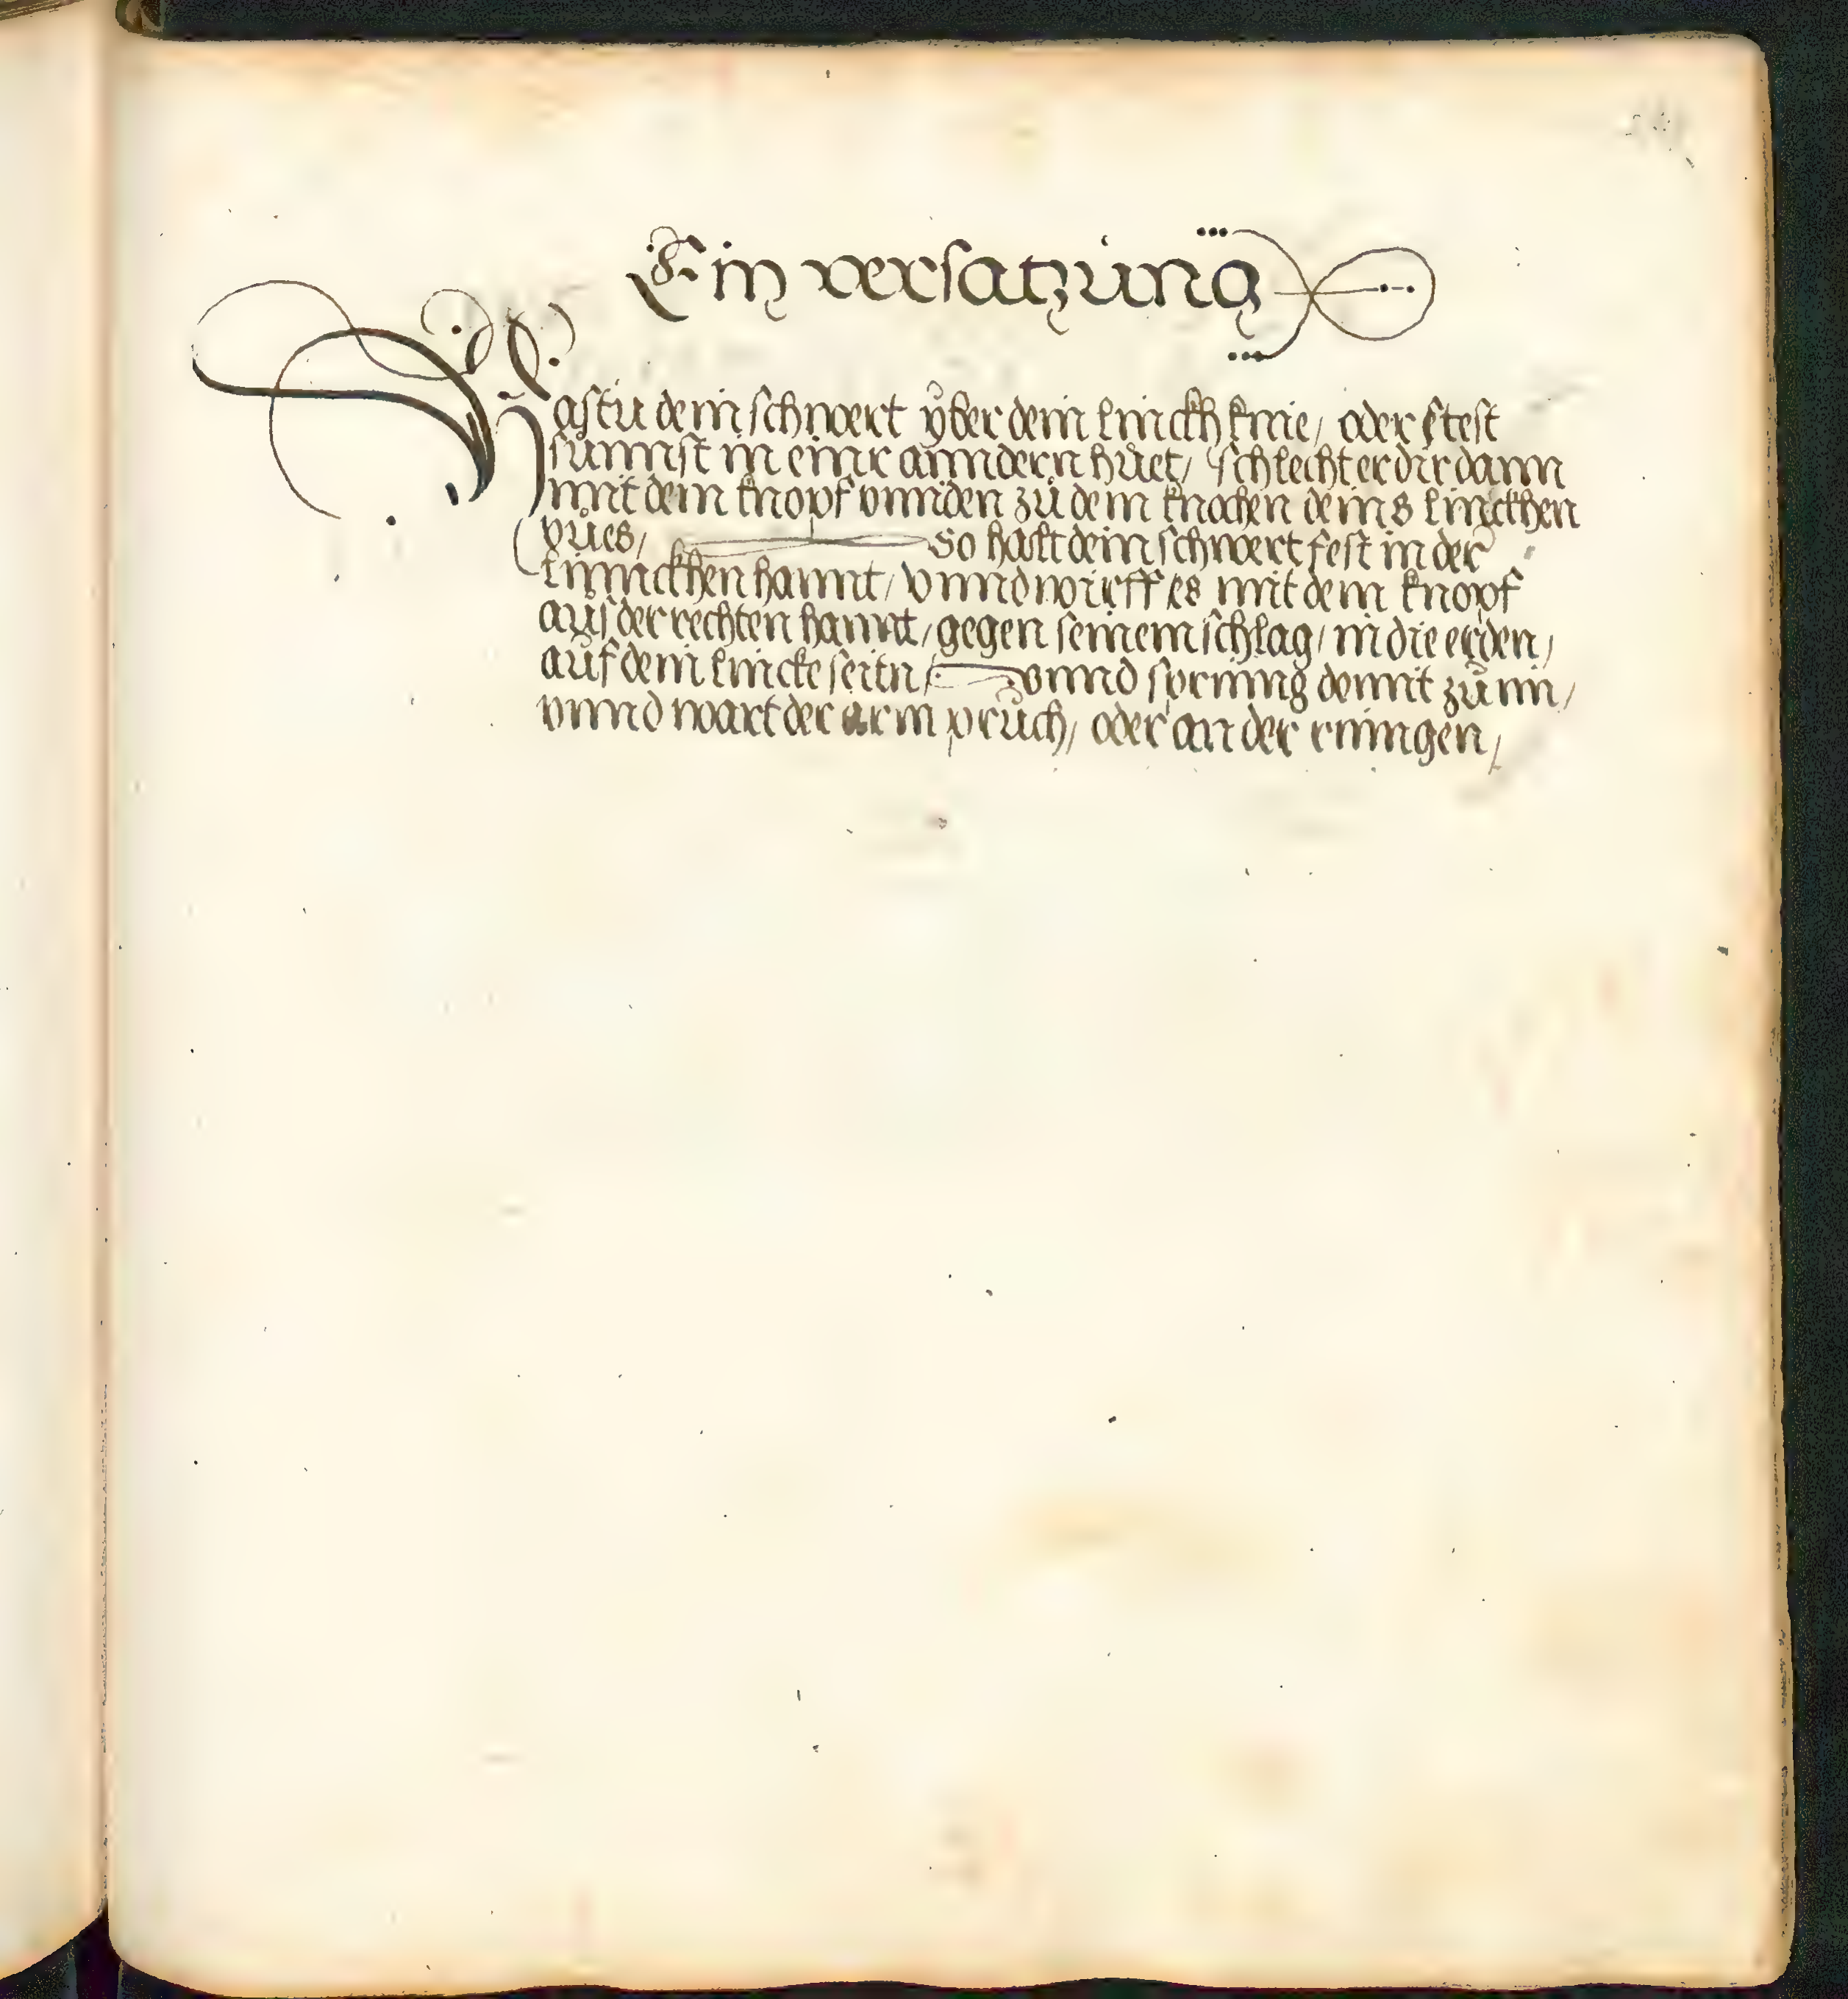 Ein versatzung
Hastu dein schwert vͤber dein linckh knie, oder stest
sunnst in einr anndern hůet, schlecht er dir dann
mit dem knopf vnnden zů dem knochen deins linckhen
vůes, so halt dein schwert fest in der
linnckhen hannt, vnnd wirff es mit dem knopf
aus der rechten hannt, gegen seinem schlag, in die erden,
auf dein lincke seitn, vnnd spring demit zů im,
vnnd wart der arm průch, oder an der ringen,